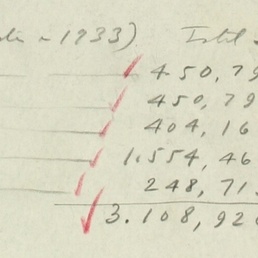 1933). Total
450,79
450,79
404,16
1.554,46
248,71
3.108,92